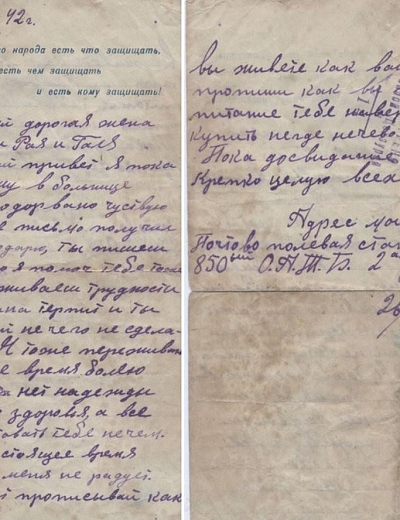 42г.
о народа есть что защищать,
есть чем защищать
и есть кому защищать!
й дорогая жена
и Рая и Галя
ий привет я пока
у в больнице
чуствую
письмо получил
ты пишеш
о я помоч тебе тоже
живаем трудности
терпит и ты
й не чего не сдела-
И тоже переживаю
е время болею
нет надежды
здоровья, а все
товать тебе нечем.
стоящее время
меня не радует.
прописывай как
вы живете как ва
пропиши как вы
питание тебе навер
купить негде нечево
Пока досвидание
Крепко целую всех
Адрес мо
Почтово полевая ста
850ый О.А.Ж.Б. 2
26